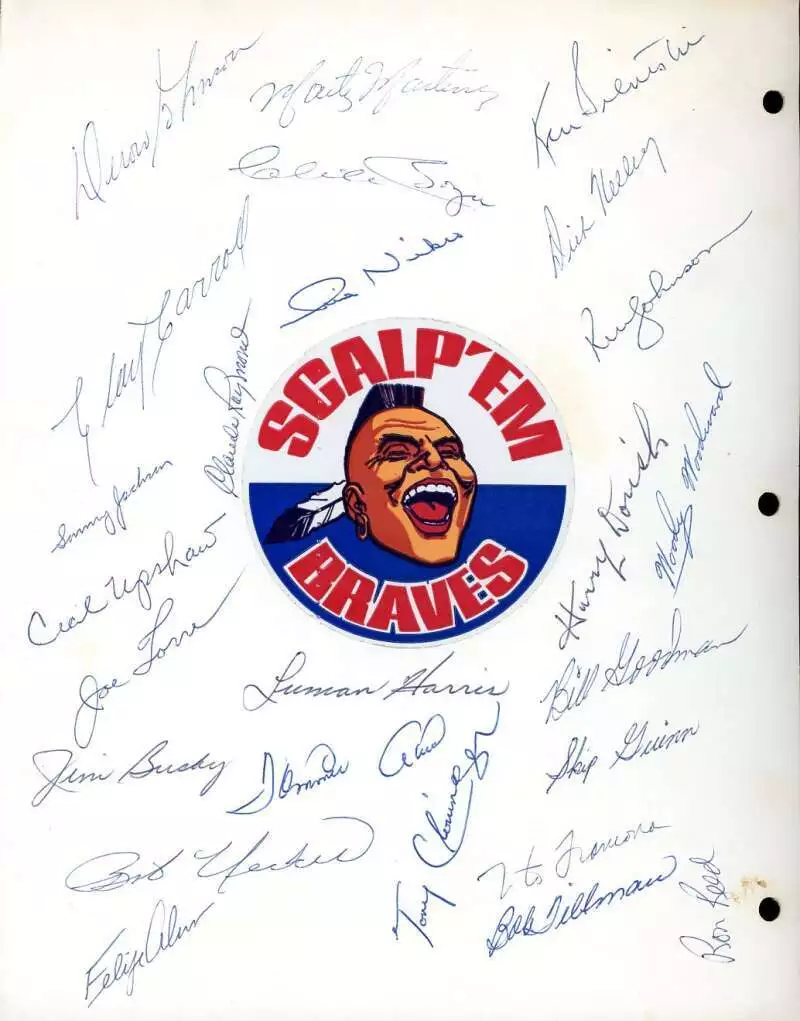 Deron Johnson
Marty Martinez
Ken Silvestri
Clete Boyer
Dick Kelley
Niekro
Ken Johnson
Clay Carroll
Claude Raymond
SCALP'EM
BRAVES
Sonny Jackson
Woody Woodward
Harry Dorish
Cecil Upshaw
Joe Torre
Luman Harris
Bill Goodman
Jim Busby
Tommie Aaron
Skip Guinn
Tony Cloninger
Bob Uecker
Tito Francona
Bob Tillman
Ron Reed
Felipe Alou